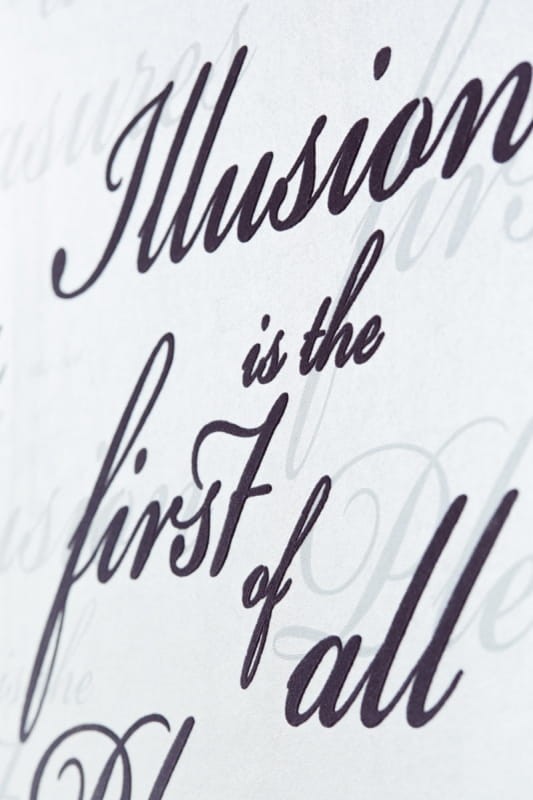 Illusion
is the
first
of
all